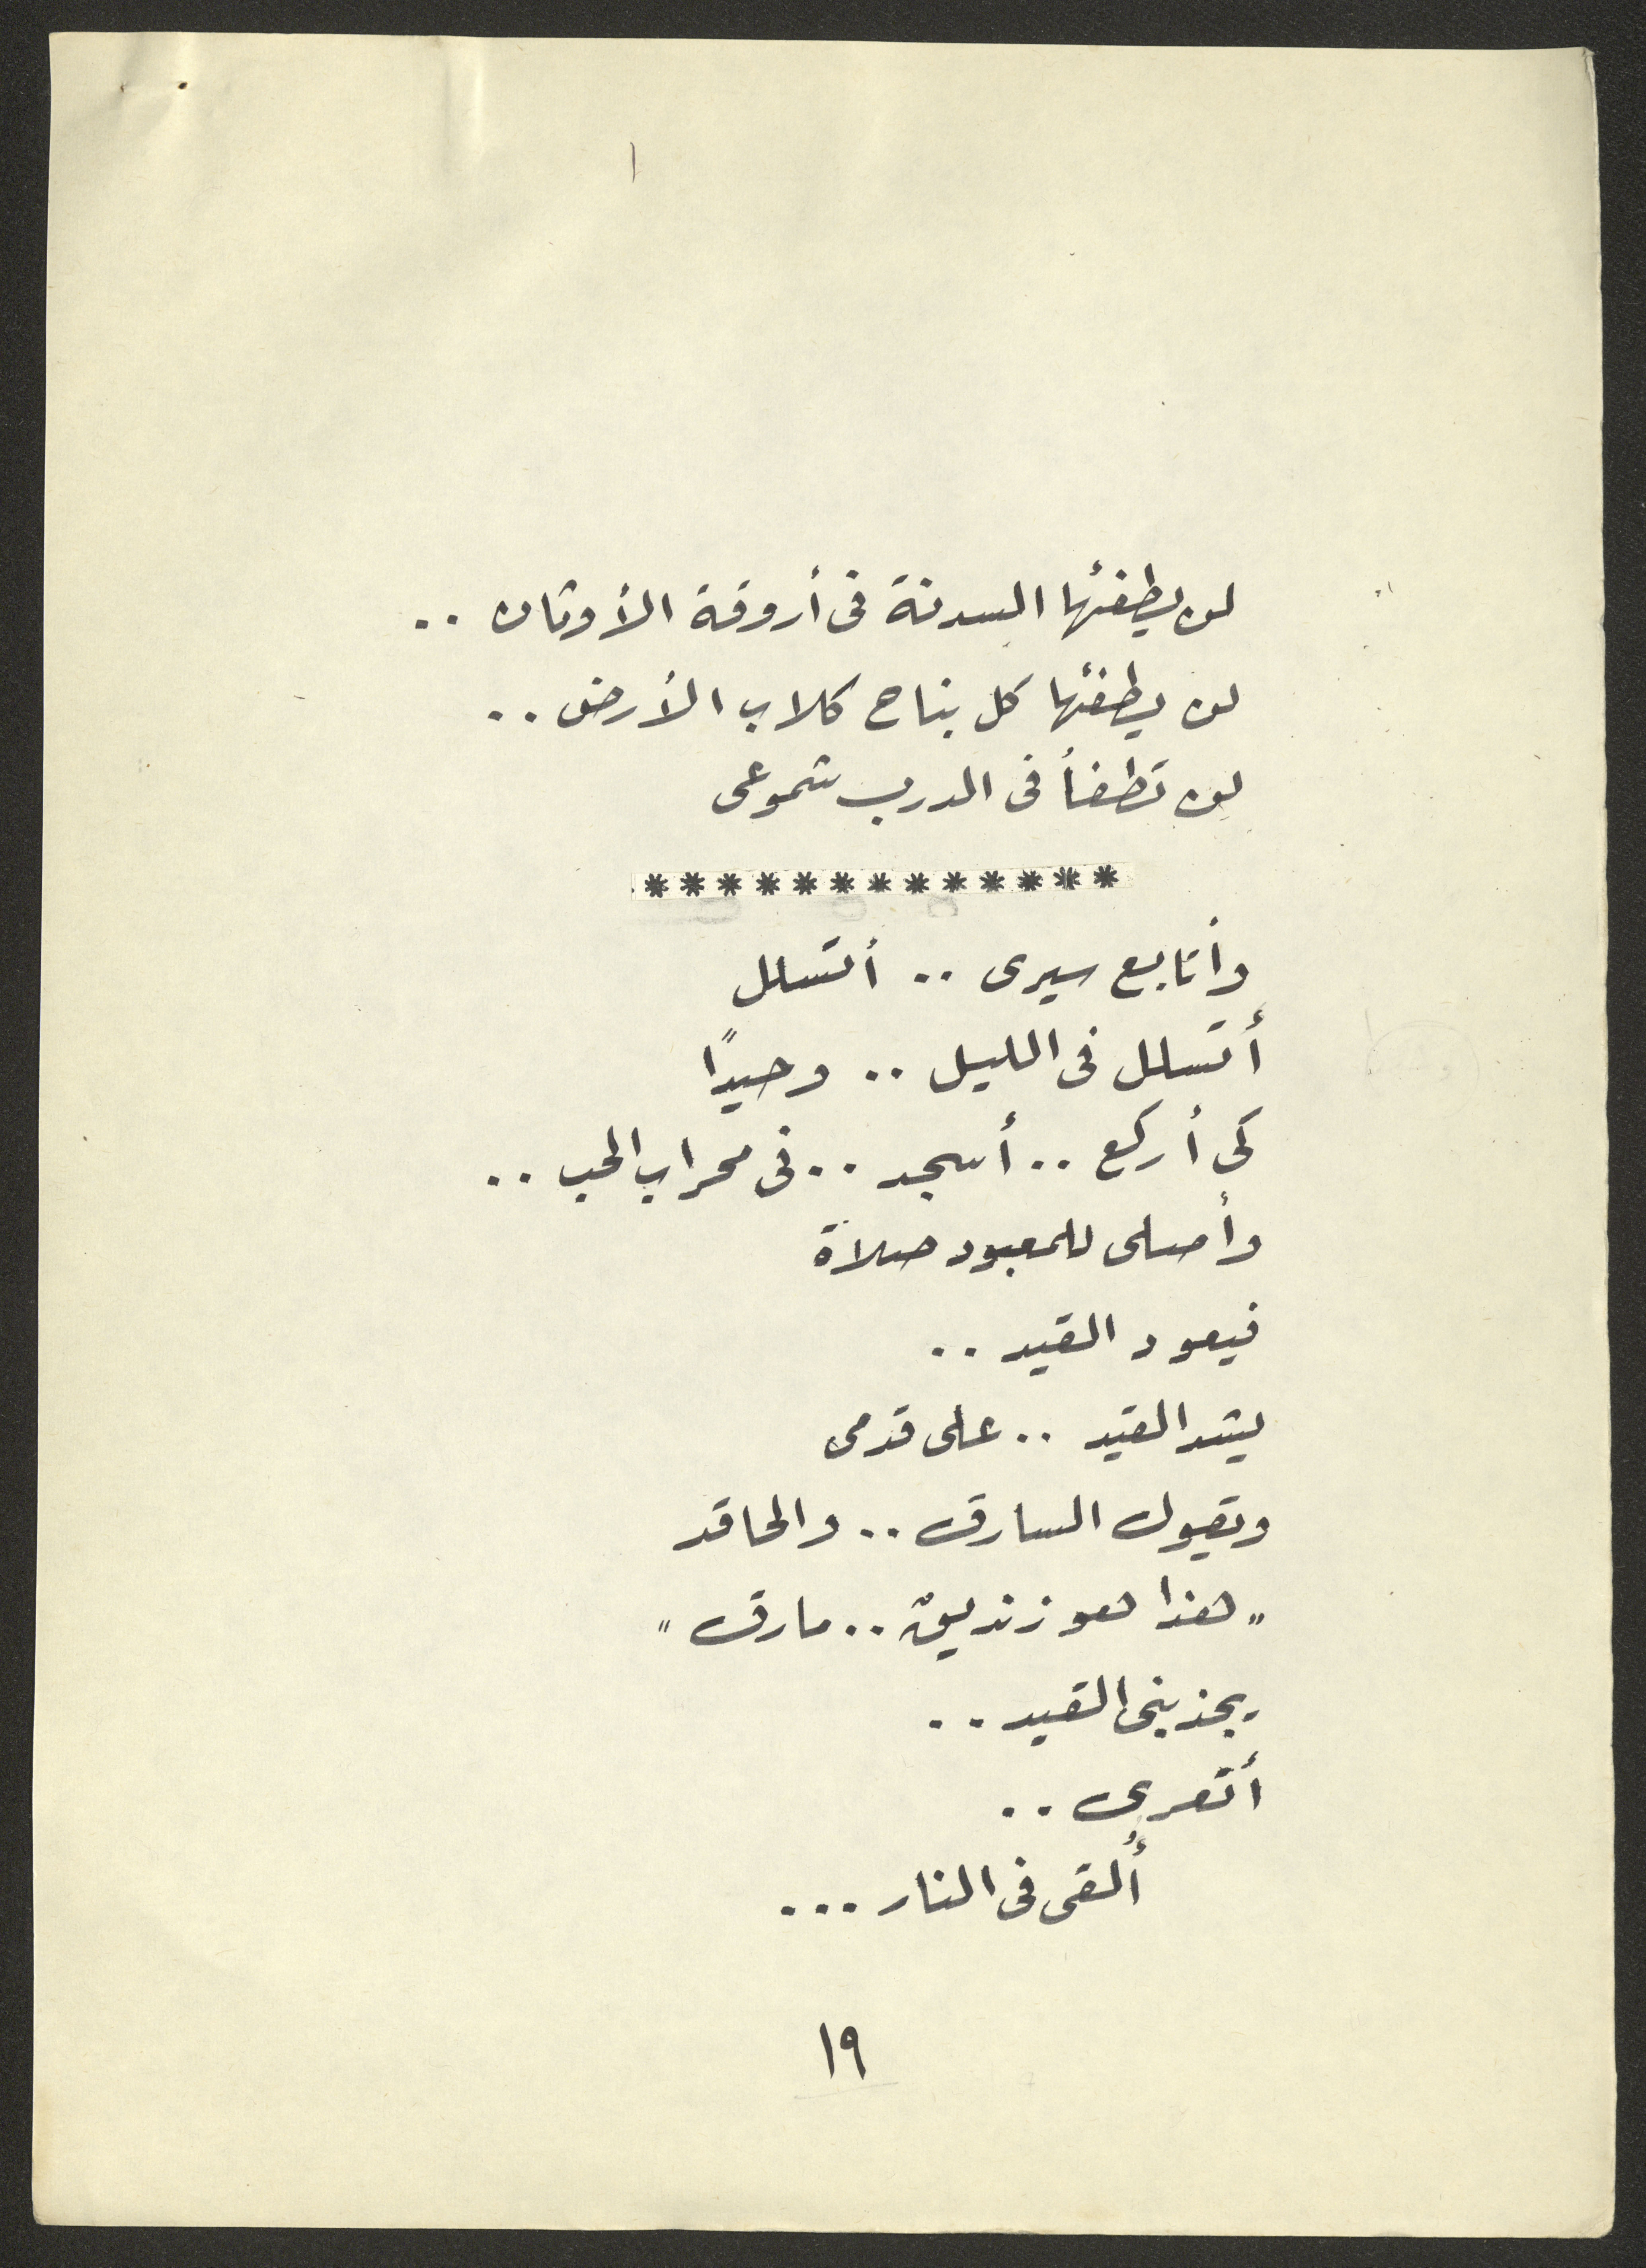 لن يطفئها السدنة فى أروقة الأوثان ..
لن يطفئها كل نباح كلاب الأرض ..
لن تطفأ فى الدرب شموعى
*************
وأتابع سيرى .. أتسلل
أتسلل فى الليل .. وحيدًا
كى أركع .. أسجد .. فى محراب الحب ..
وأصلى للمعبود صلاة
فيعود القيد ..
يشد القيد .. على قدمى
ويقول السارق .. والحاقد
"هذا هو زنديق .. مارق"
يجذبنى القيد ..
أتعرى ..
أُلقى فى النار ...
١٩